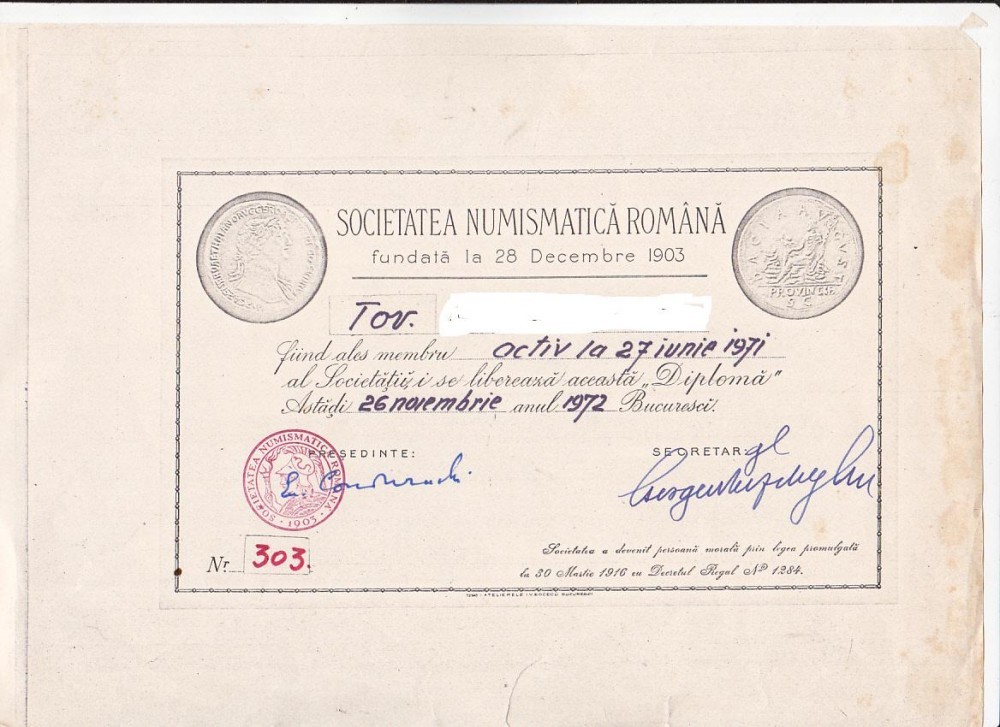 SOCIETATEA NUMISMATICĂ ROMÂNĂ
fundată la 28 Decembre 1903
Tov.
fiind ales membru activ la 27 iunie 1971
al Societăţii, i se liberează această „Diplomă”
Astăḑi 26 noiembrie anul 1972 Bucuresci.
PREŞEDINTE:
SECRETAR gl
SOCIETATEA NUMISMATICA ROMANA
· 1903 ·
Nr. 303.
Societatea a devenit persoană morală prin legea promulgată
la 30 Martie 1916 cu Decretul Regal No 1284.
DACIA AUGUST
PROVINCIA
S C